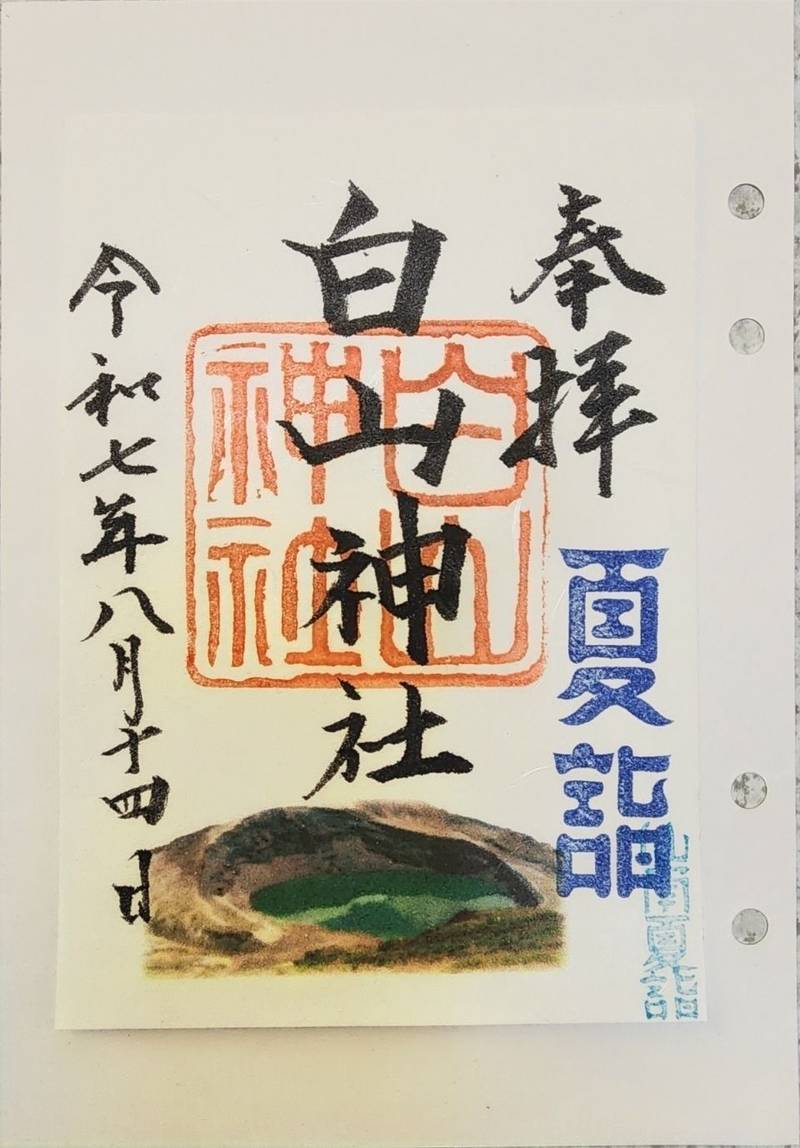 奉拝
夏詣
白山神社
白山
神社
令和七年八月十四日